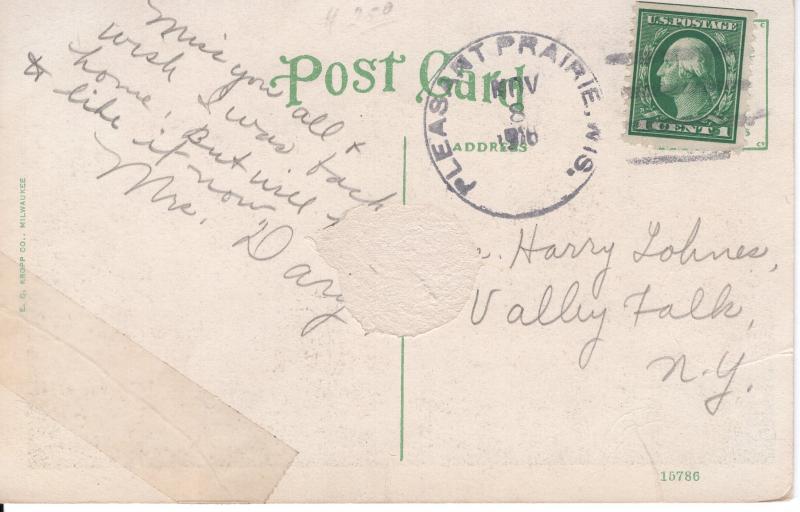 4 250
Miss you all &
wish I was back
home, But will
& like it now,
Mrs. Dary
Post Card
ADDRESS
PLEASANT PRAIRIE, WIS.
NOV
8
1916
U.S. POSTAGE
1 CENT 1
Harry Lohnes,
Valley Falk,
N.Y.
E. C. KROPP CO., MILWAUKEE
15786